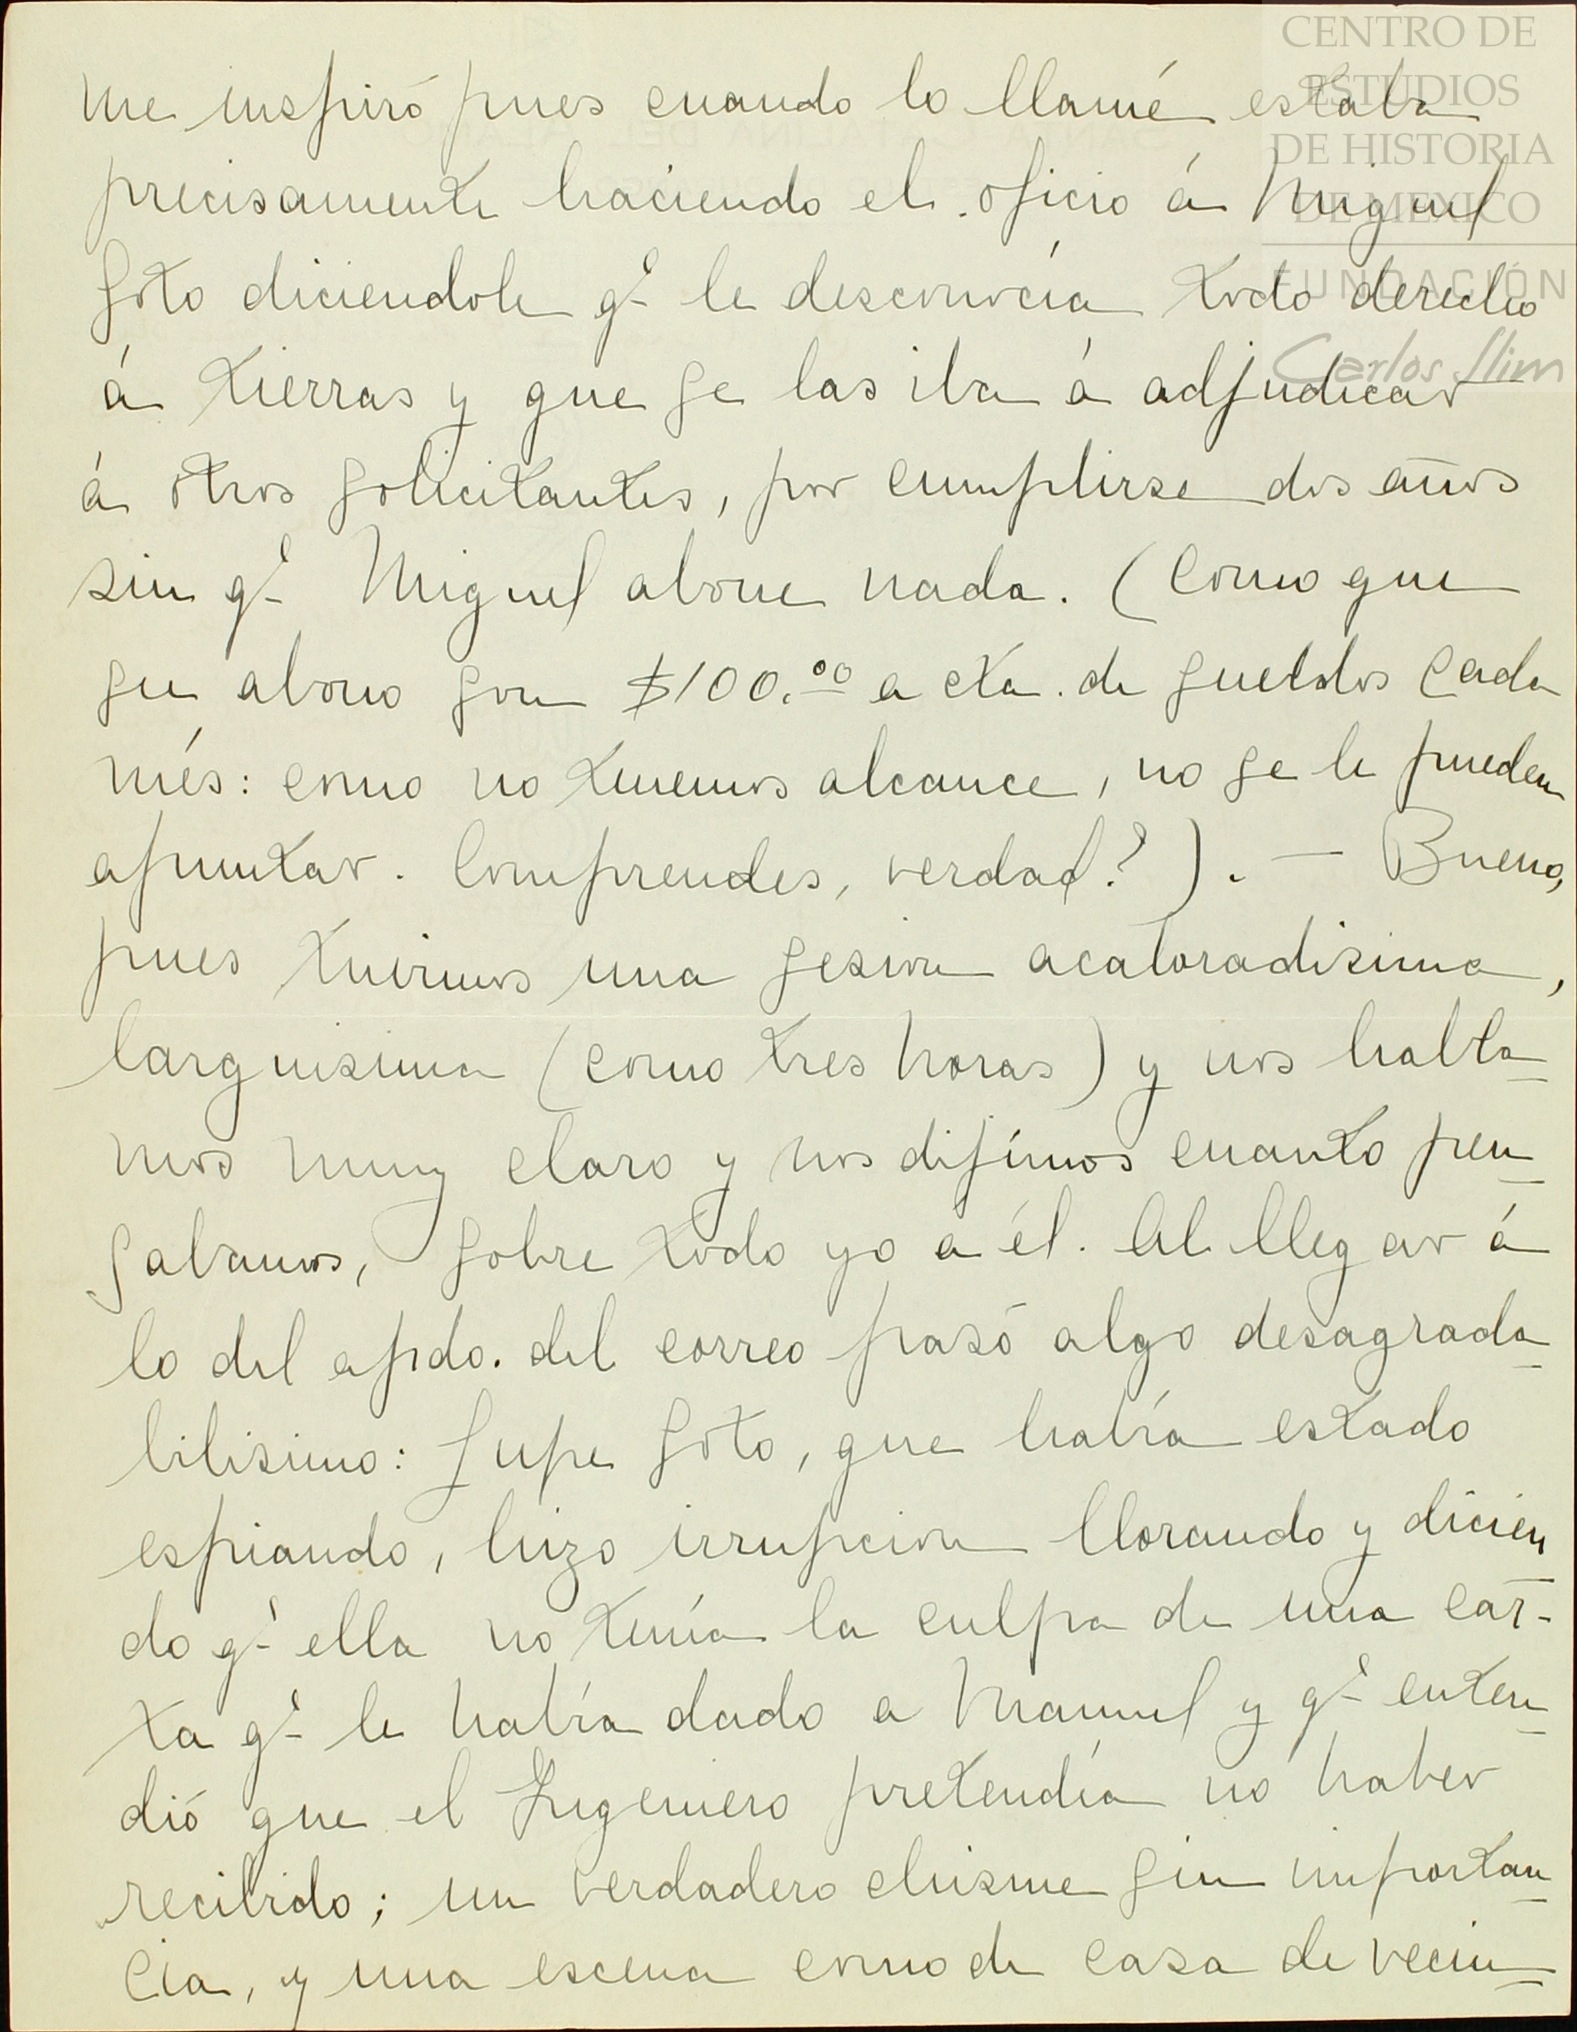 CENTRO DE
ESTUDIOS
DE HISTORIA
DE MEXICO
FUNDACIÓN
Carlos Slim
me inspiró pues cuando lo llamé estaba
precisamente haciendo el oficio á Miguel
Soto diciendole qᵉ le desconocía todo derecho
á tierras y que se las iba á adjudicar
á otros solicitantes, por cumplirse dos años
sin qᵉ Miguel abone nada. (Como que
su abono son $100.⁰⁰ a cta. de sueldos cada
més: como no tenemos alcance, no se le pueden
apuntar. Comprendes, verdad?). — Bueno,
pues tuvimos una sesion acaloradisima,
larguisima (como tres horas) y nos habla-
mos muy claro y nos dijímos cuanto pen-
sabamos, sobre todo yo a él. Al llegar á
lo del apdo. del correo pasó algo desagrada-
bilisimo: Lupe Soto, que había estado
espiando, hizo irrupcion llorando y dicien-
do qᵉ ella no tenía la culpa de una car-
ta qᵉ le había dado a Manuel y qᵉ enten-
dió que el Ingeniero pretendía no haber
recibido; un verdadero chisme sin importan-
cia, y una escena como de casa de vecin-